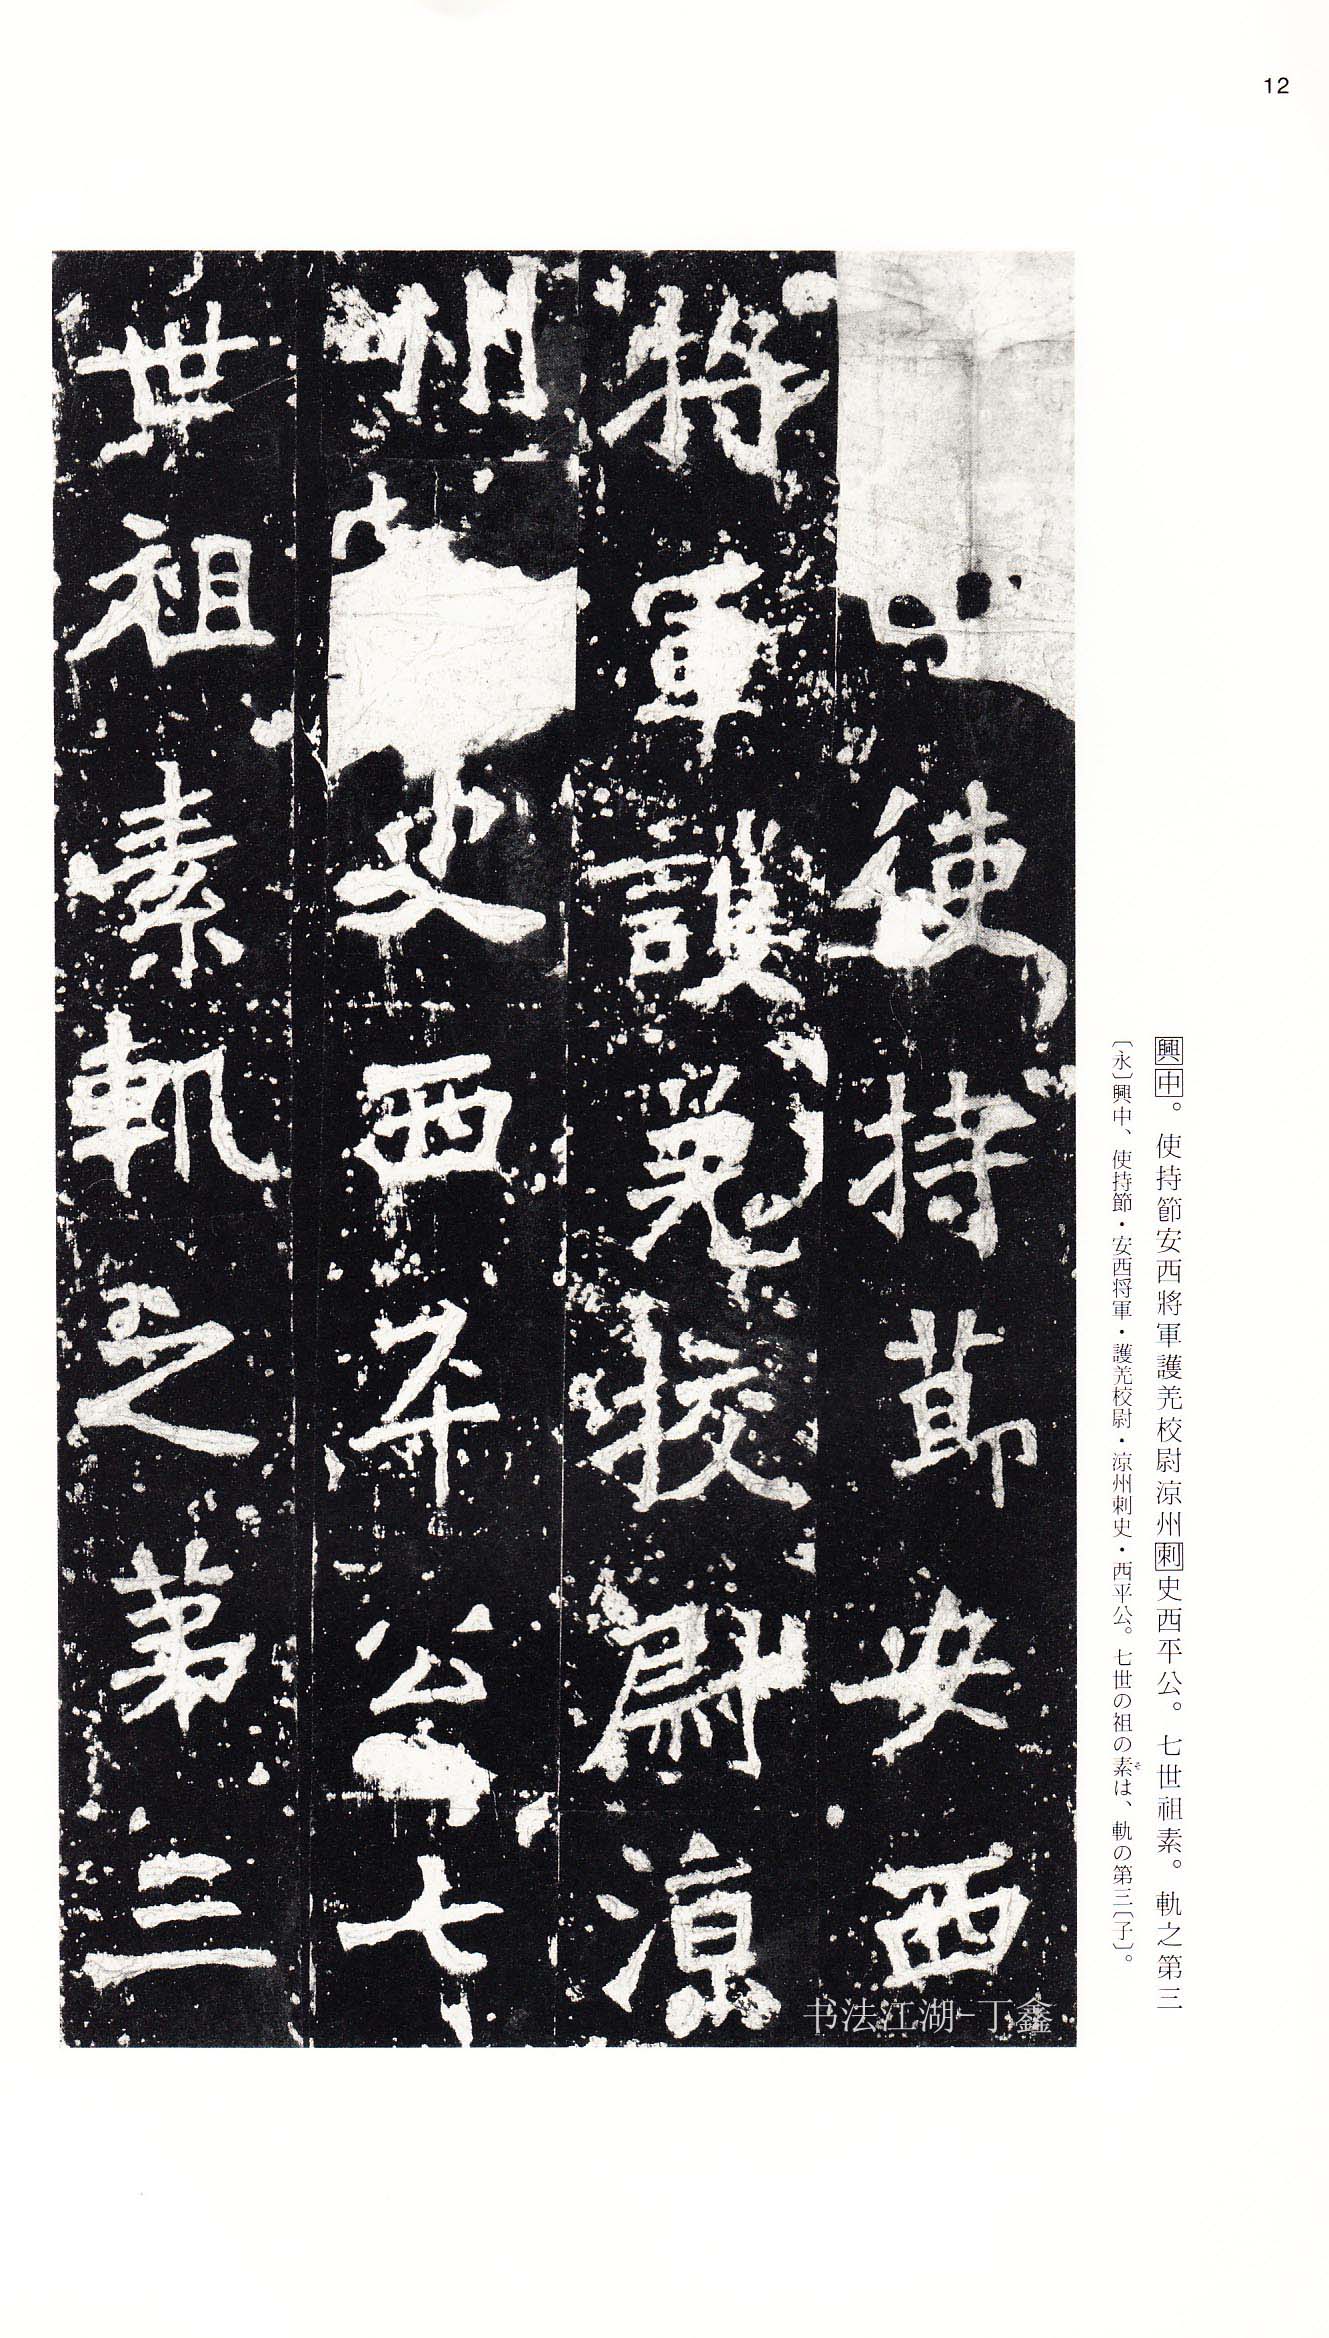 12
興中。使持節安西將軍護羌校尉涼州刺史西平公。七世祖素。軌之第三
〔永〕興中、使持節・安西将軍・護羌校尉・涼州刺史・西平公。七世の祖の素は、軌の第三〔子〕。
そ
使持節安西
將軍護羌校尉涼
州史西平公七
世祖素軌之第三
书法江湖-丁鑫